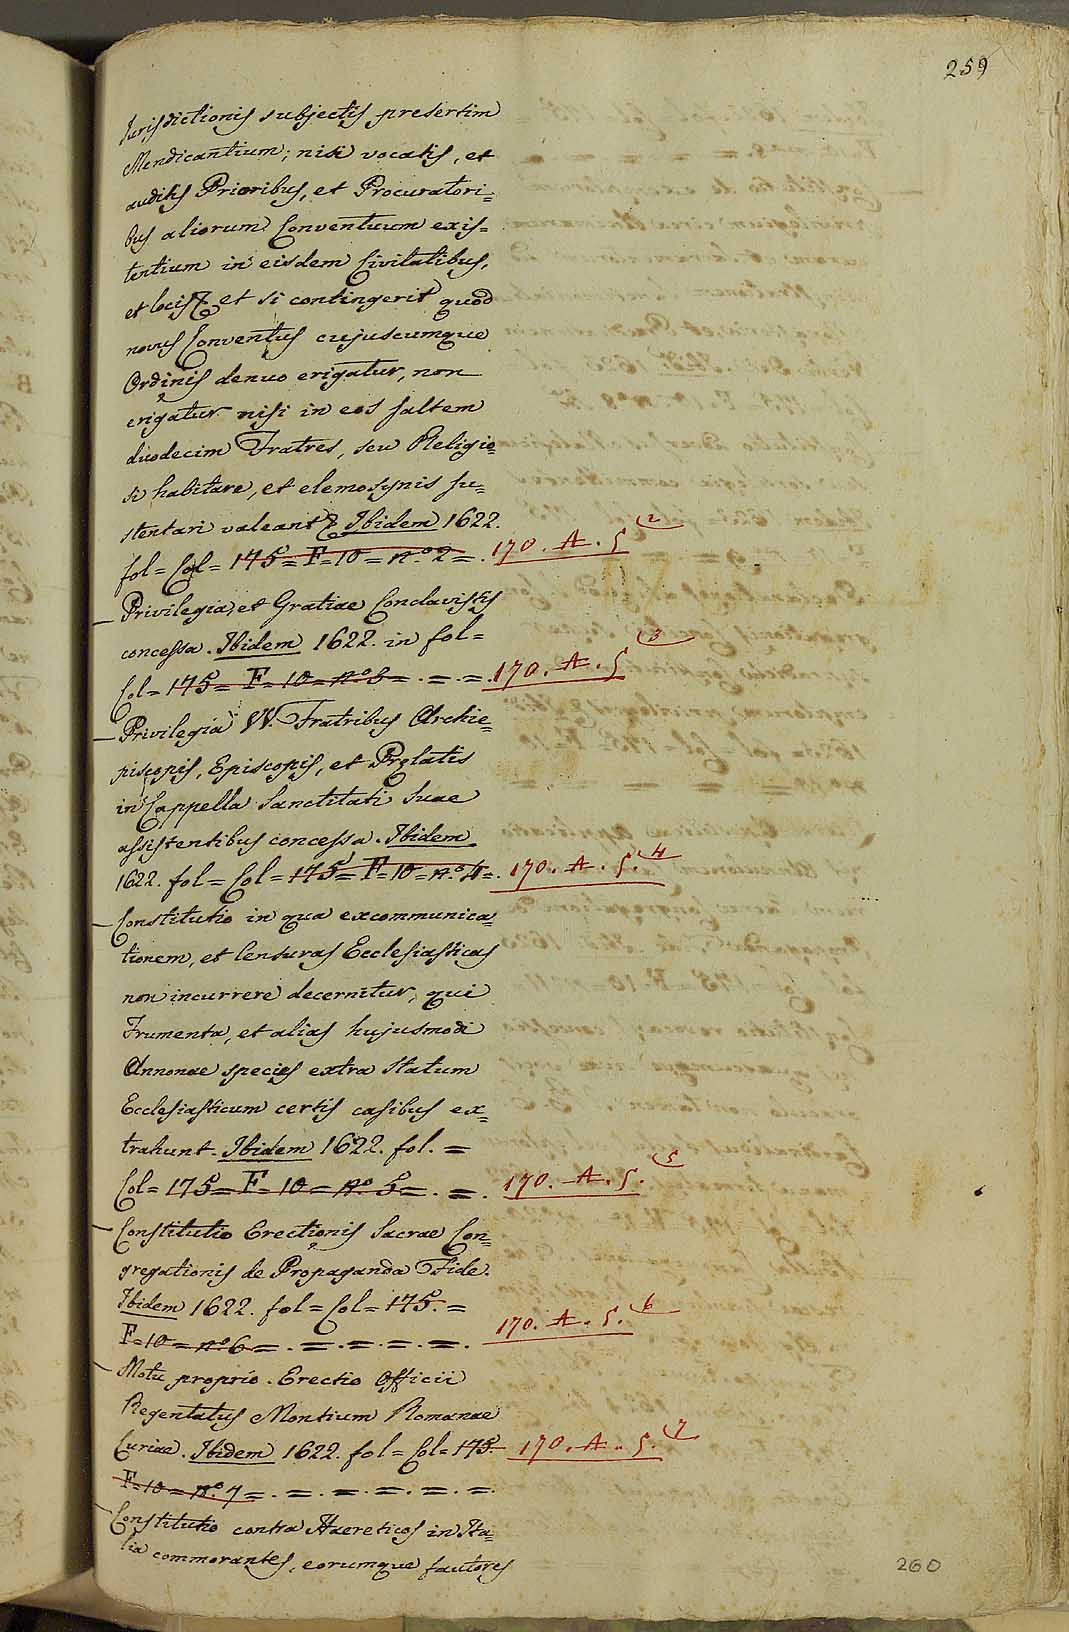 259
Jurisdictionis subjectis presertim
Mendicantium; nisi vocatis, et
auditis Prioribus, et Procuratori=
bus aliorum Conventuum exis=
tentium in eisdem Civitatibus,
et locis & et si contingerit quod
novus Conventus cujuscumque
Ordinis denuo erigatur, non
erigatur nisi in eos saltem
duodecim Fratres, seu Religio=
si habitare, et elemosynis su=
stentari valeant & Ibidem 1622.
fol= Col= 175= F=10= nº 2=. 170. A. 5 2
Privilegia, et Gratiae Conclavistis
concessa. Ibidem 1622. in fol=
Col= 175= F=10= nº 3=.=.=. 170. A. 5 3
Privilegia VV. Fratribus Archie=
piscopis, Episcopis, et Prelatis
in Cappella Sanctitati Suae
assistentibus concessa. Ibidem
1622. fol= Col= 175= F=10= nº 4=. 170. A. 5. 4
Constitutio in qua excommunica=
tionem, et Censuras Ecclesiasticas
non incurrere decernitur, qui
Frumenta, et alias hujusmodi
Annonae species extra Statum
Ecclesiasticum certis casibus ex=
trahunt. Ibidem 1622. fol. =
Col= 175= F=10= nº 5=.=. 170. A. 5. 5
Constitutio Erectionis Sacrae Con=
gregationis de Propaganda Fide.
Ibidem 1622. fol= Col= 175. =
F=10= nº 6=.=.=.=.=. 170. A. 5. 6
Motu proprio. Erectio Officii
Regentatus Montium Romanae
Curiae. Ibidem 1622. fol= Col= 175 170. A. 5. 7
F=10= nº 7=.=.=.=.=.=.
Constitutio contra Haereticos in Ita=
lia commorantes, eorumque fautores
260